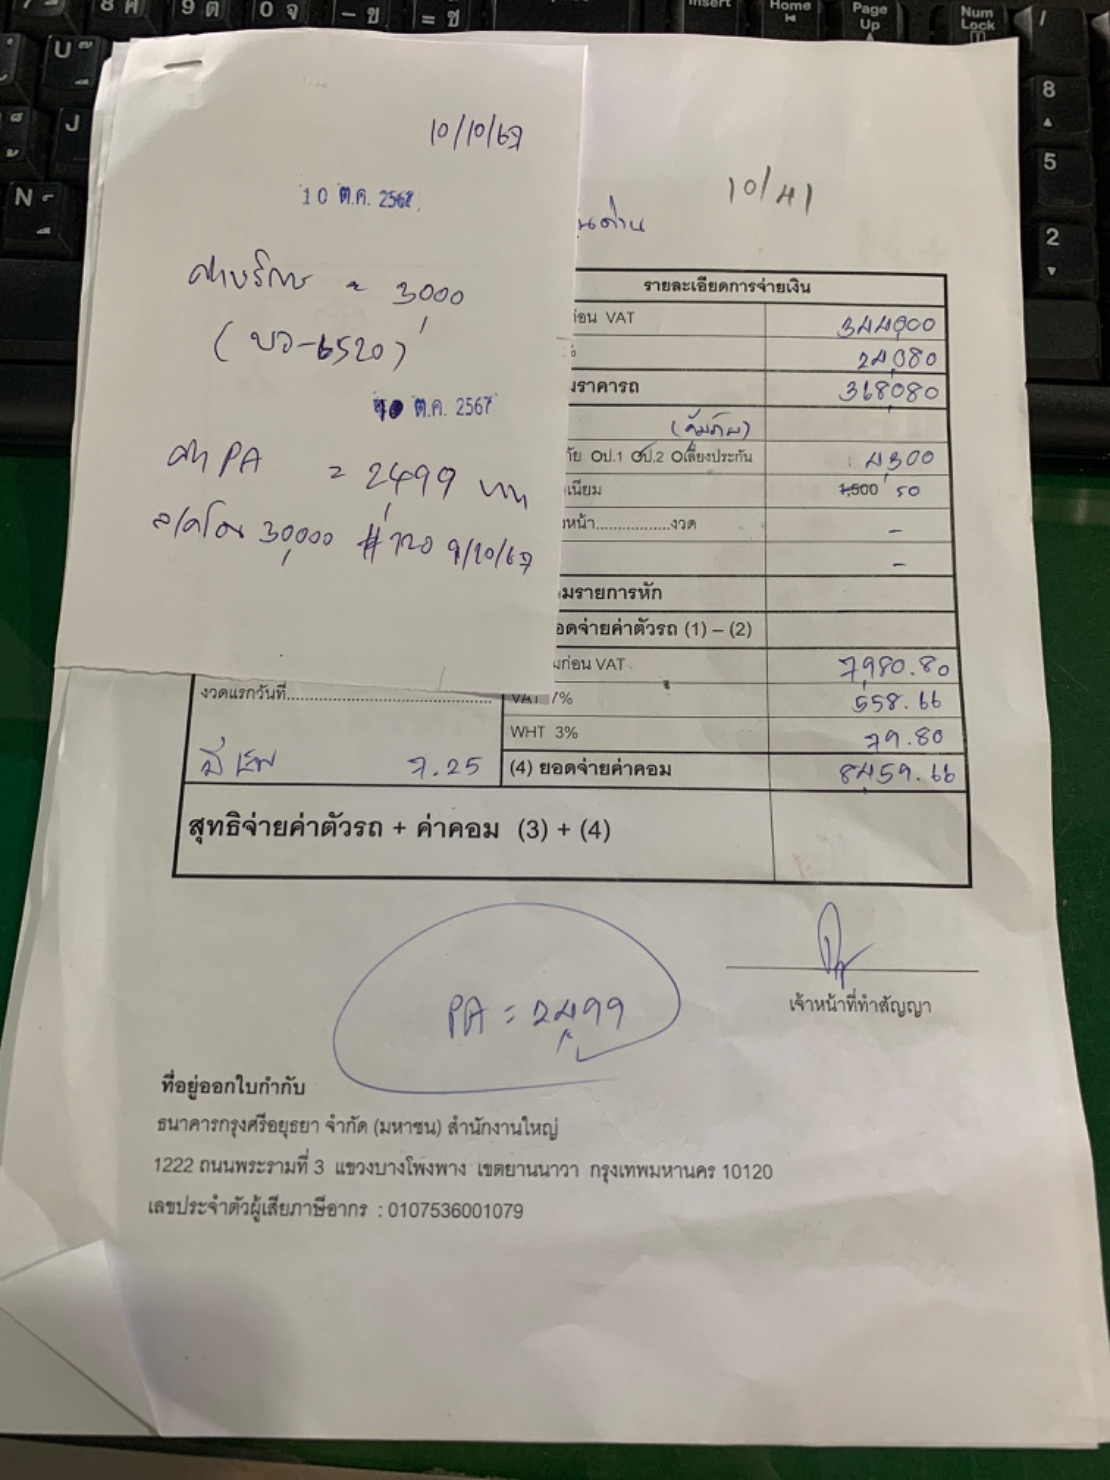 10/10/67
10 ต.ค. 2567
ค่าบริการ = 3,000
(บว-6520)
10 ต.ค. 2567
ค่า PA = 2,499 บาท
30,000 # 9/10/67
10/41
ด่วน
รายละเอียดการจ่ายเงิน
ก่อน VAT 344,000
% 24,080
ราคารถ 368,080
(คุ้มภัย)
ภัย Oป.1 Oป.2 Oเลี่ยงประกัน 4,300
เนียม 1,500 50
หน้า................งวด -
-
มรายการหัก
ยอดจ่ายค่าตัวรถ (1) – (2)
ก่อน VAT 7,980.80
งวดแรกวันที่................................ VAT 7% 558.66
WHT 3% 79.80
7.25 (4) ยอดจ่ายค่าคอม 8,459.66
สุทธิจ่ายค่าตัวรถ + ค่าคอม (3) + (4)
PA = 2,499
เจ้าหน้าที่ทำสัญญา
ที่อยู่ออกใบกำกับ
ธนาคารกรุงศรีอยุธยา จำกัด (มหาชน) สำนักงานใหญ่
1222 ถนนพระรามที่ 3 แขวงบางโพงพาง เขตยานนาวา กรุงเทพมหานคร 10120
เลขประจำตัวผู้เสียภาษีอากร : 0107536001079